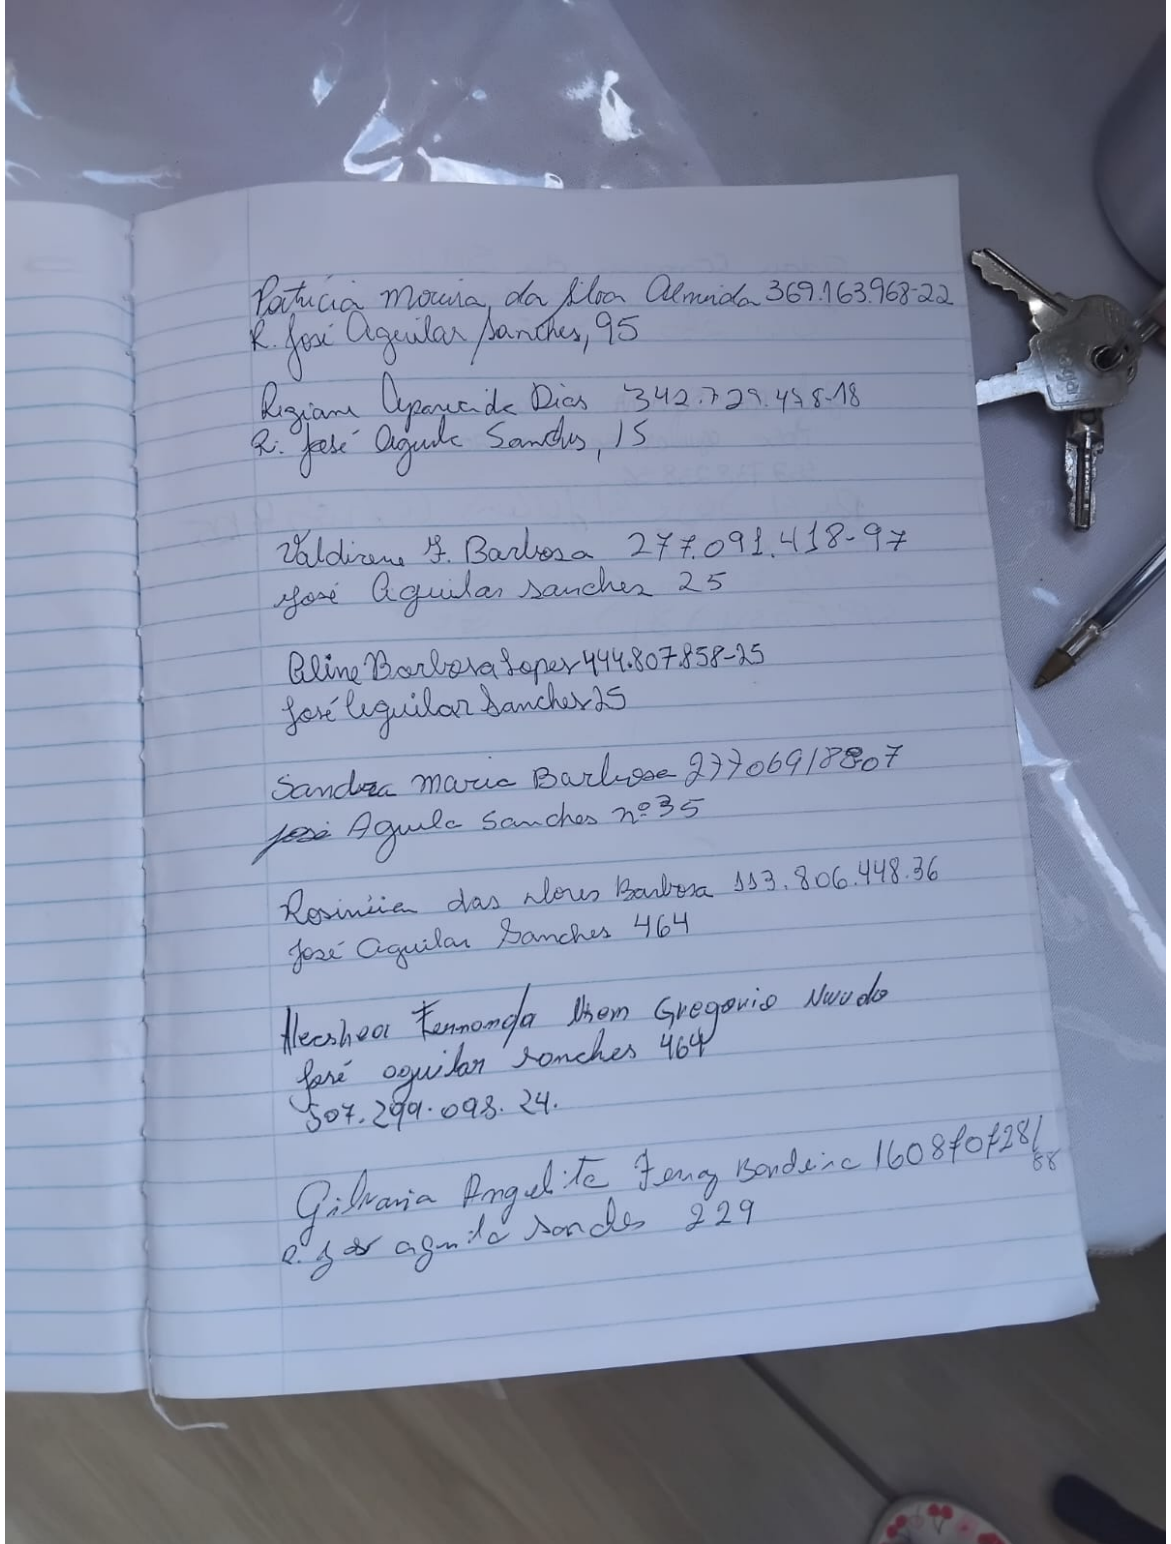 Patricia Moreira da Silva Almeida 369.163.968-22
R. José Aguilar Sanches, 95
Regiane Aparecida Dias 342.729.498-18
R. José Aguila Sanches, 15
Valdirene F. Barbosa 277.091.418-97
José Aguilar Sanches 25
Aline Barbosa Lopes 444.807.858-25
José Aguilar Sanches 25
Sandra Maria Barbosa
José Aguila Sanches nº 35
das Dores Barbosa 113.806.448.36
José Aguilar Sanches 464
Fernanda Gregorio
José aguilar sanches 464
507.299.098.24.
Gilvania Angelita Bandeira
R. José aguila sanches 229